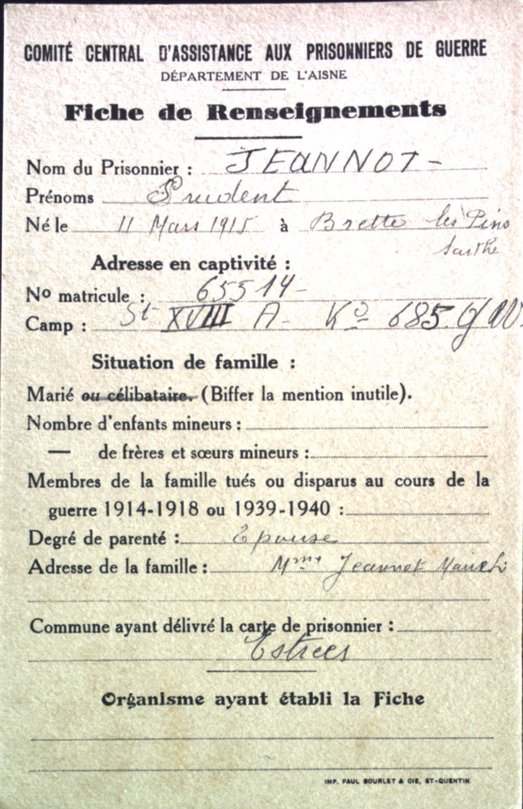 COMITÉ CENTRAL D'ASSISTANCE AUX PRISONNIERS DE GUERRE
DÉPARTEMENT DE L'AISNE
Fiche de Renseignements
Nom du Prisonnier : JEANNOT -
Prénoms Prudent
Né le 11 Mars 1915 à Brette les Pins
Sarthe
Adresse en captivité :
No matricule : 65514 -
Camp : St XVIII A - Ko 685
Situation de famille :
Marié ou célibataire. (Biffer la mention inutile).
Nombre d'enfants mineurs :
— de frères et sœurs mineurs :
Membres de la famille tués ou disparus au cours de la
guerre 1914-1918 ou 1939-1940 :
Degré de parenté : Epouse
Adresse de la famille : Mme Jeannot
Commune ayant délivré la carte de prisonnier :
Estrees
Organisme ayant établi la Fiche
IMP. PAUL BOURLET & CIE, ST-QUENTIN